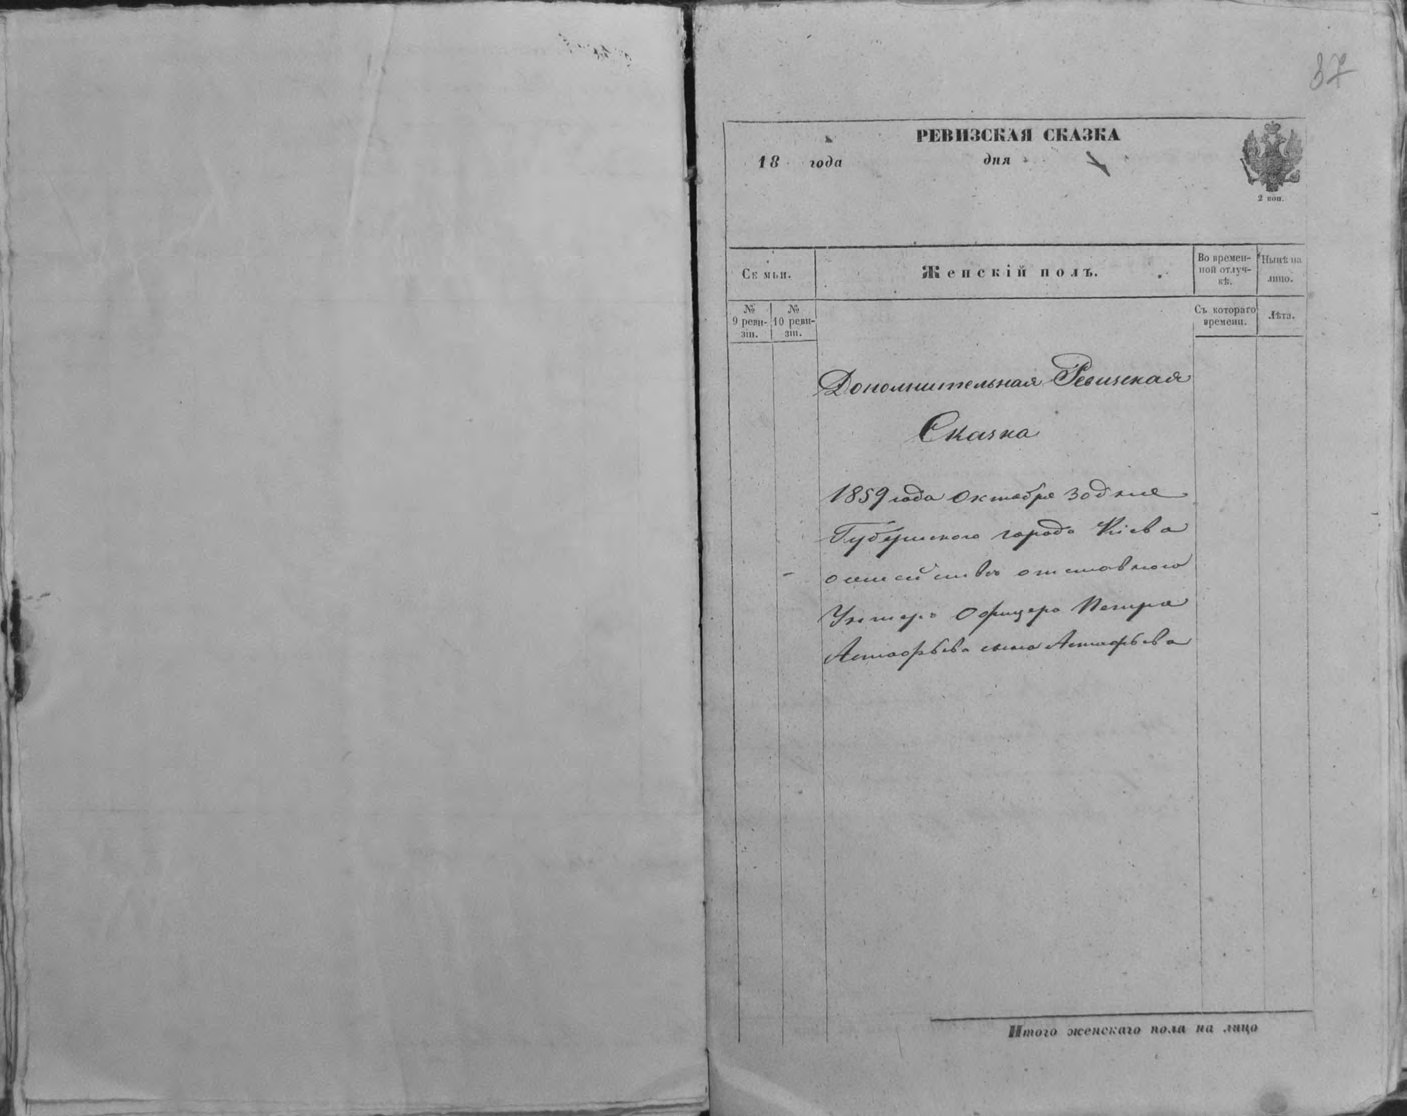 87
РЕВИЗСКАЯ СКАЗКА
18 года дня
2 коп.
Семьи.
Женскій полъ.
Во времен-
ной отлуч-
кѣ.
Нынѣ на
лицо.
№
9 реви-
зіи.
№
10 реви-
зіи.
Съ котораго
времени.
Лѣта.
Дополнительная Ревизская
Сказка
1859 года Октября 30 дня
Губернскаго города Кіева
о семействѣ отставнаго
Унтеръ Офицера Петра
Астафьева сына Астафьева
Итого женскаго пола на лицо